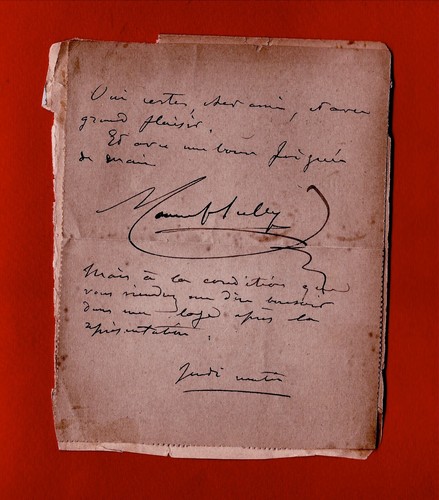 Oui certes, cher ami, et avec
grand plaisir.
Et avec une bonne poignée
de main
Mounet Sully
Mais à la condition que
vous viendrez me dire bonsoir
dans ma loge après la
représentation.
Jeudi matin